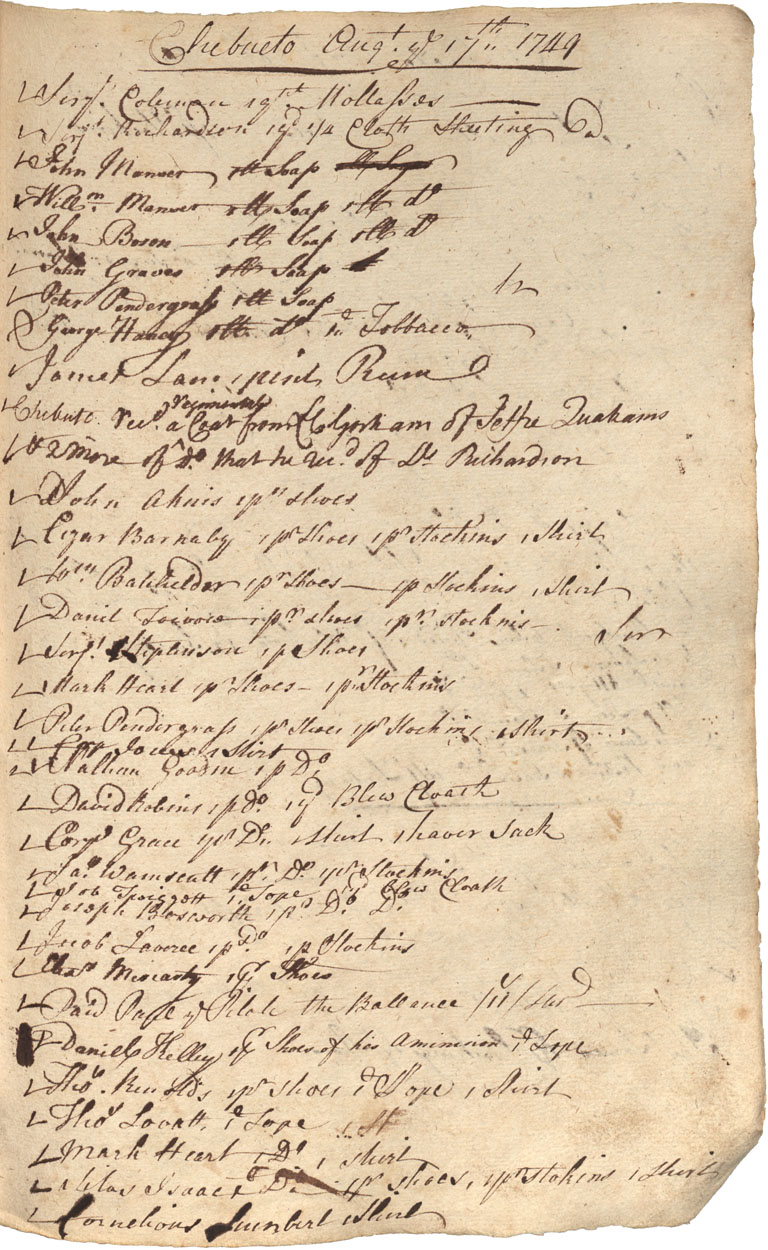 Chebucto Augt. ye 17th 1749
Serjt. Coleman 1 qrt Mollasses
Serjt. Richardson 1 yd 1/4 Cloth Sheeting
John Manuer 1 lb Soap
Willm. Manuer 1 lb Soap 1 lb do
John Boson 1 lb Soap 1 lb do
John Graves 1 lb Soap
Peter Pendergrass 1 lb Soap
George Haney 1 lb do Tobbacco
James Lam 1 pint Rum
Chebucto Recd. a regimental Coat from Gorham of Jeffre Quahams
2 more of do that he Recd of Dr Richardson
John Ahnis 1 pr Shoes
Cezar Barnaby 1 pr Shoes 1 pr Stockins 1 Shirt
Wm Batchelder 1 pr Shoes 1 p Stockins 1 Shirt
Daniel 1 pr Shoes 1 pr Stocknis
Serjt. Stephenson 1 p Shoes
Mark Heart 1 pr Shoes 1 pr Stockins
Peter Pendergrass 1 pr Shoes 1 pr Stockins 1 Shirt
Jones 1 Shirt
William Goodin 1 p Do
David Robins 1 p do 1 yd Blew Cloath
Corpl Grace 1 pr Do 1 Shirt 1 haver Sack
Jas Wamscutt 1 pr Do 1 pr Stockins
Job Sope Blew Cloath
Joseph Bosworth 1 pr Do Do
Jacob 1 p do 1 p Stockins
Moriarty 1 Shoes
Paid Page ye Pilote the Ballance
Daniel Kelley 1 Shoes of his Sope
Thos Renolds 1 pr Shoes Sope 1 Shirt
Thos Lovatt Sope
Mark Heart Do 1 Shirt
Silas Isaacs Do 1 pr Shoes, 1 pr Stokins 1 Shirt
Cornelious 1 Shirt